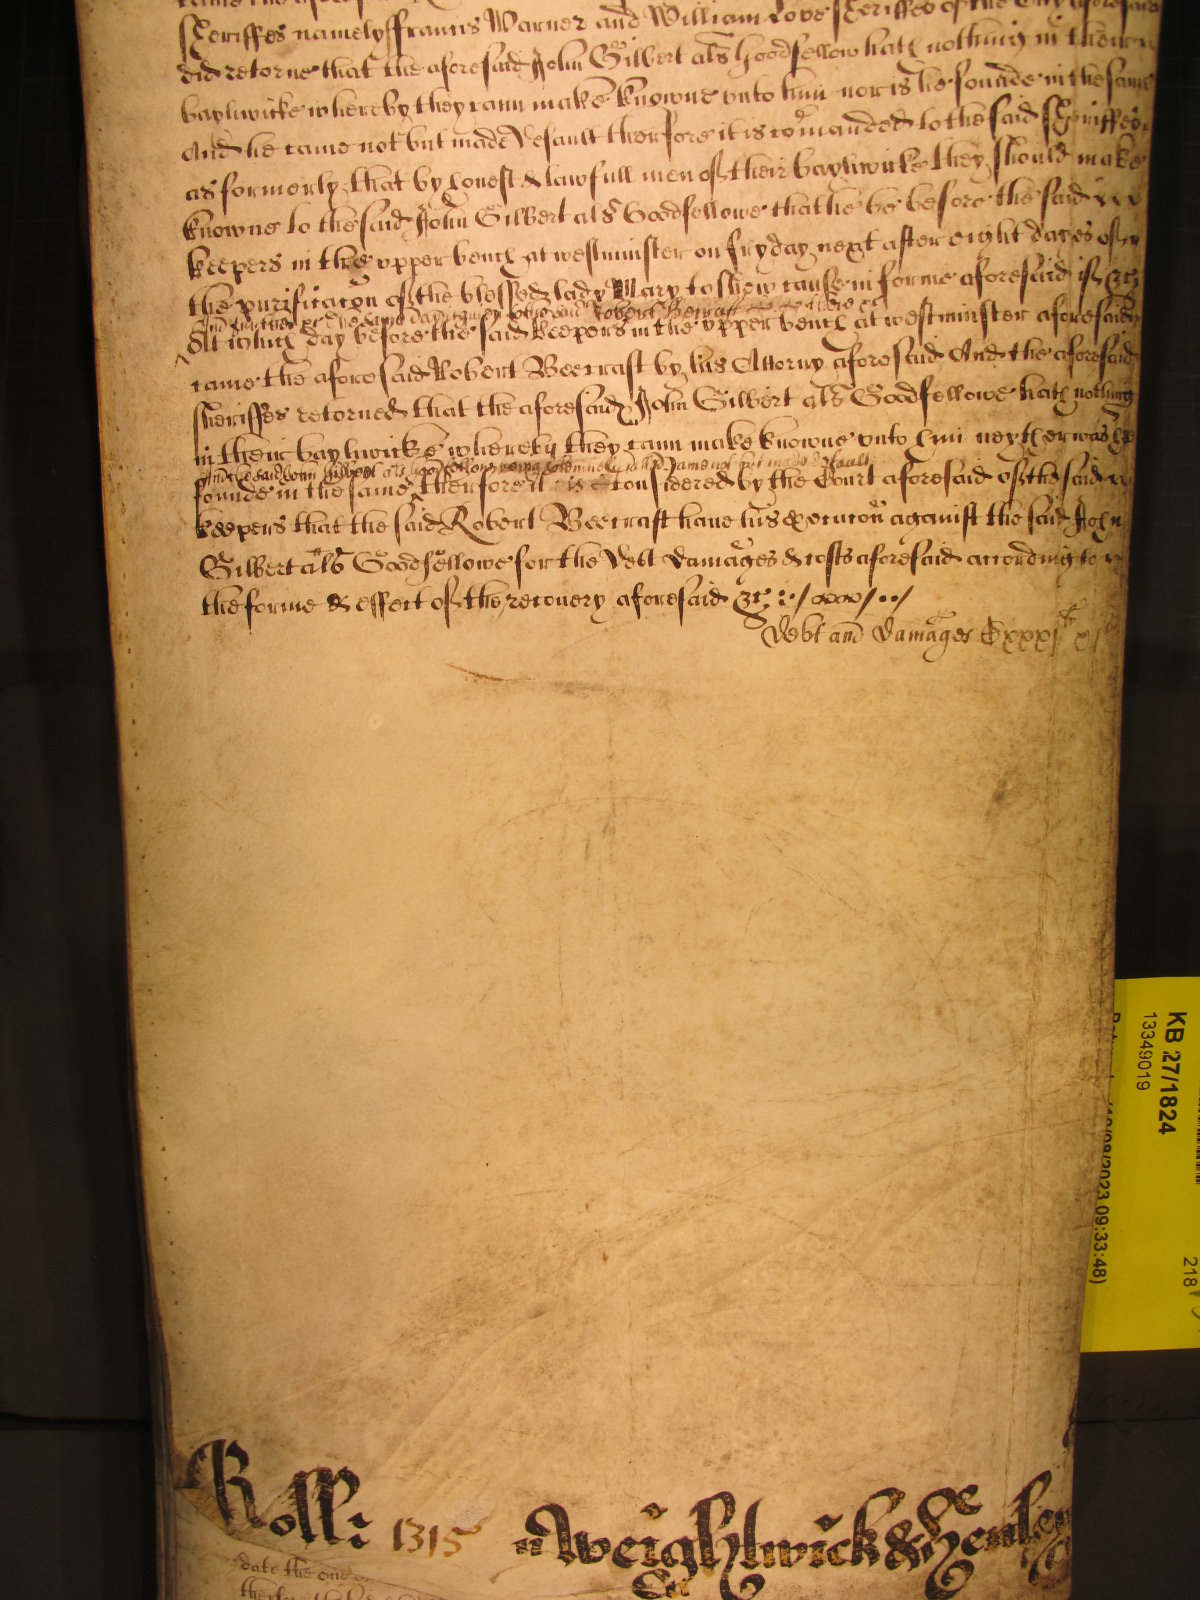 Sheriffes namely ffrancis Warner and William Love Sheriffes of the City aforesaid
did retorne that the aforesaid John Gilbert als Goodfellow hath nothing in their
bayliwicke whereby they cann make knowne unto him nor is he founde in the same
And he came not but made Default therfore it is comanded to the said Sheriffes
as formerly that by honest & lawfull men of their bayliwicke they should make
knowne to the said John Gilbert als Goodfellowe that he be before the said
keepers in the upper bench at westminster on fryday next after eight dayes of
the purificacon of the blessed lady Mary to shew cause in forme aforesaid if &c
the same day is given to the said Robert Beecraft there &c
At which day before the said keepers in the upper bench at westminster aforesaid
came the aforesaid Robert Beecraft by his Attorny aforesaid And the aforesaid
Sheriffes retorned that the aforesaid John Gilbert als Goodfellowe hath nothing
in their bayliwicke whereby they cann make knowne unto him neyther was he
And the said John Gilbert als Goodfellow being solemnely called came not but made default
founde in the same Therfore it is considered by the Court aforesaid of the said
keepers that the said Robert Beecraft have his execucon against the said John
Gilbert als Goodfellowe for the Debt damages & costs aforesaid according to
the forme & effect of the recovery aforesaid &c
Debt and Damages
Roll: 1315 Weightwick & Henley
date the one
KB 27/1824
13349019
2023 09:33:48)
218